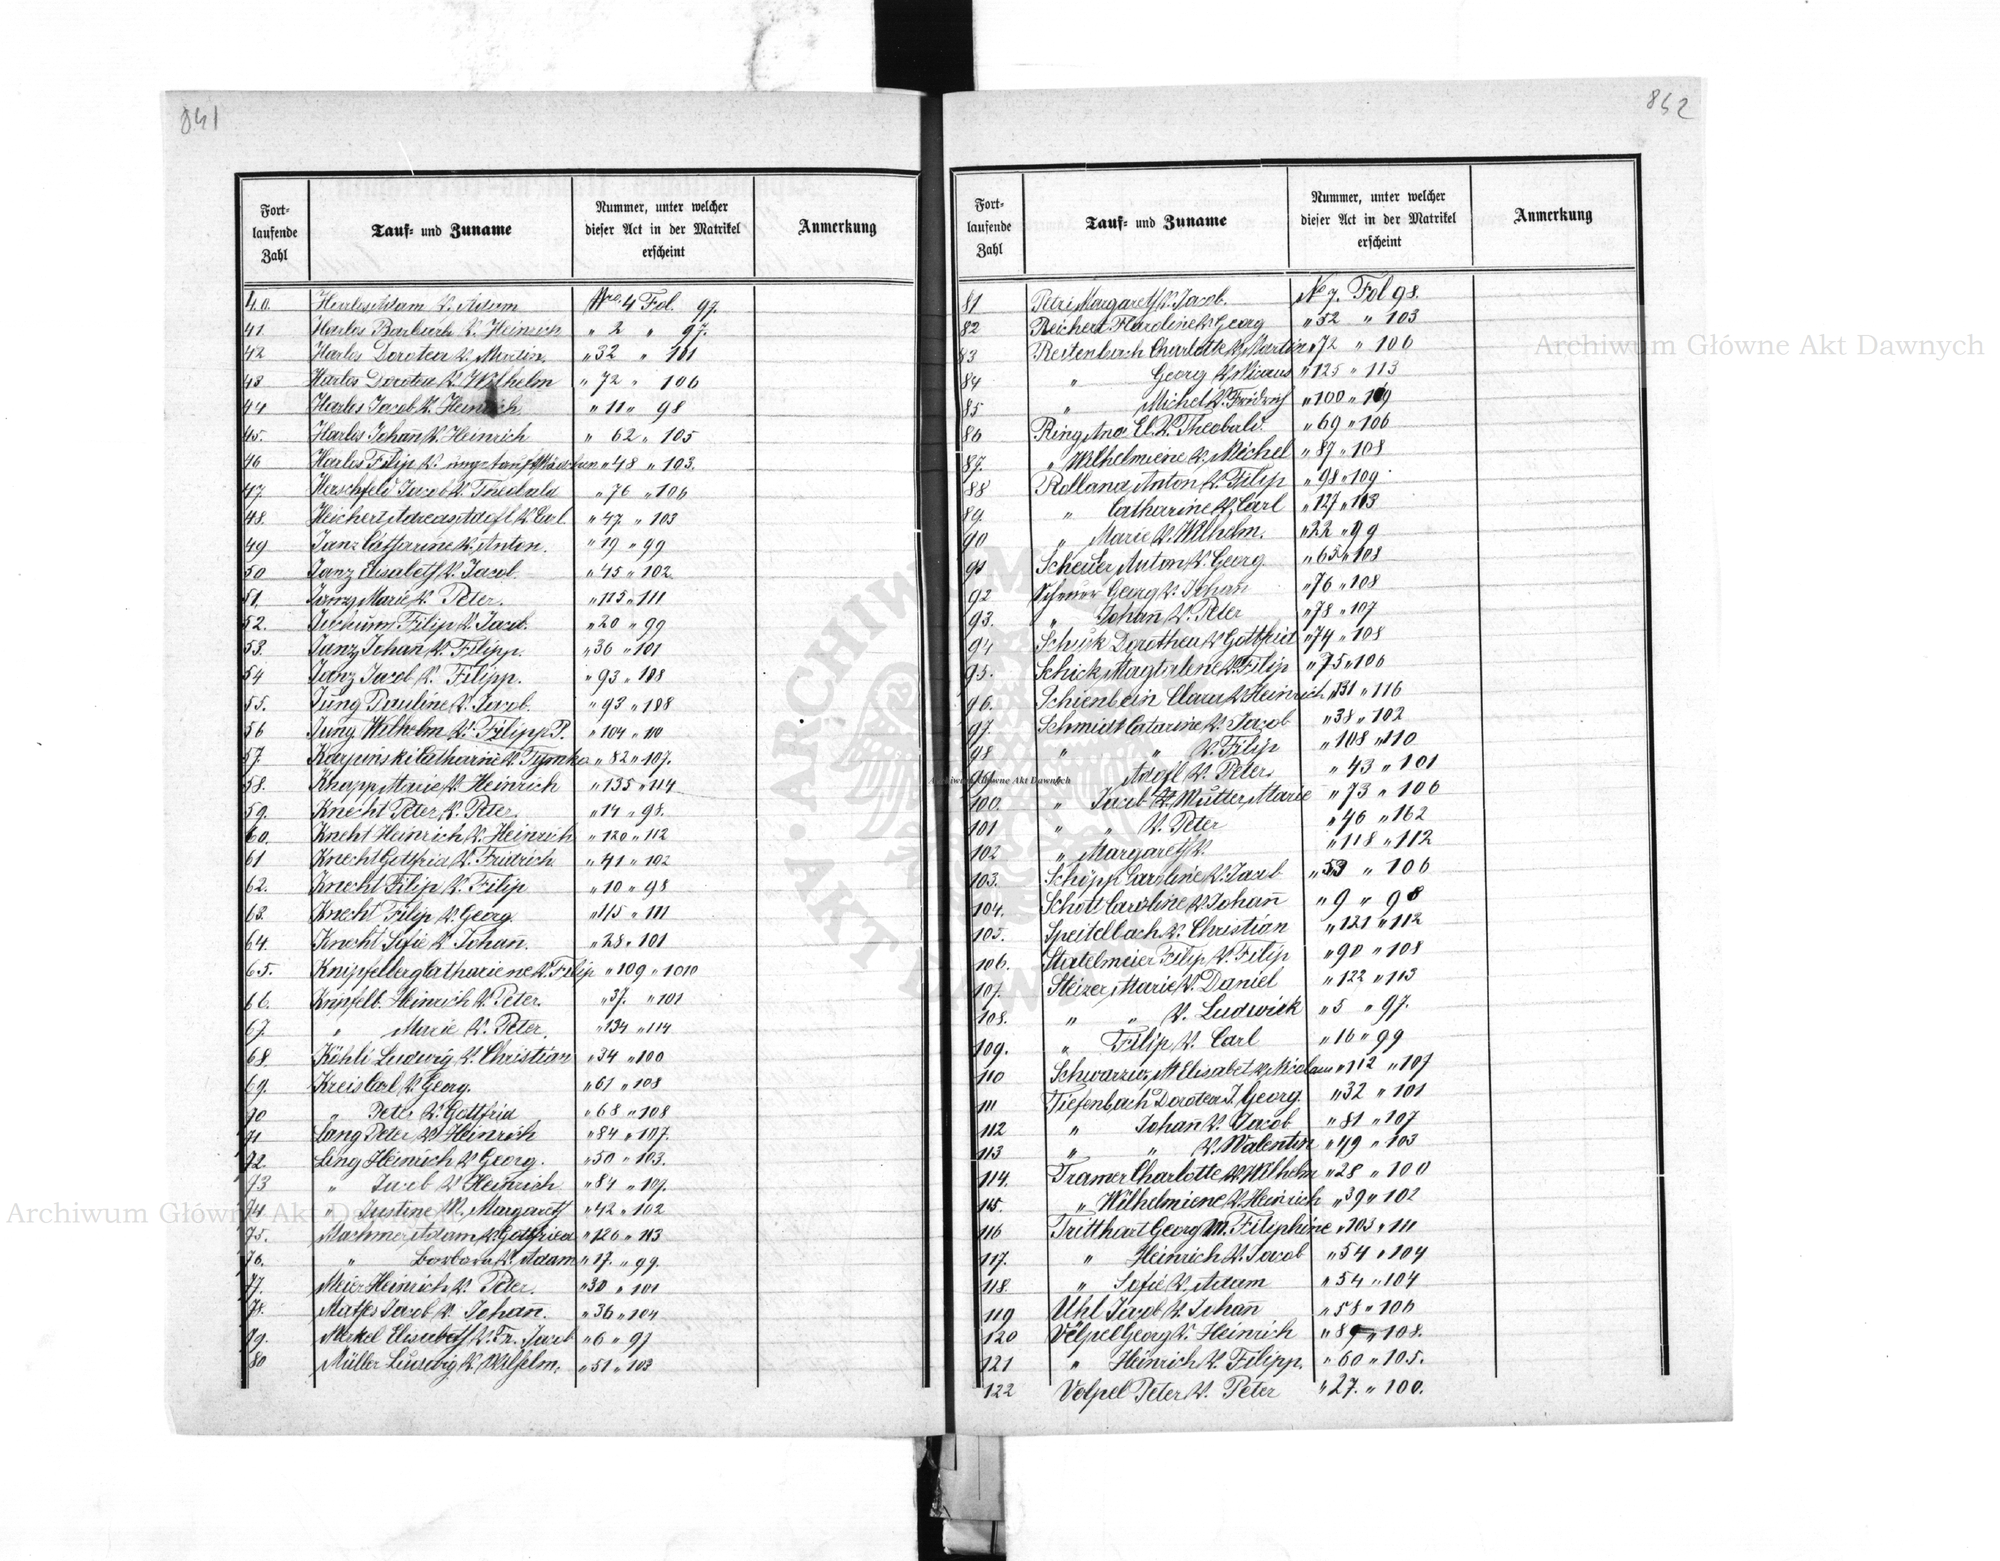 841
Fort-
laufende
Zahl
Tauf- und Zuname
Nummer, unter welcher
dieser Act in der Matrikel
erscheint
Anmerkung
40. Harlos Adam V. Adam Nro. 4 Fol. 97.
41. Harlos Barbarh V. Heinrich " 2 " 97.
42 Harlos Dorotea V. Martin " 32 " 101
43 Harlos Dorotea V. Wilhelm " 72 " 106
44 Harlos Jacob V. Heinrich " 11 " 98
45. Harlos Johan̄ V. Heinrich " 62 " 105
46 Harlos Filip V. " 48 " 103.
47. Herschfeld Jacob V. Theobald " 76 " 106
48. Heichert Andreas Adofl V. Carl. " 47. " 103
49 Janz Catharine V. Anton. " 19 " 99
50 Janz Elisabeth V. Jacob. " 45 " 102
51. Janz Marie V. Peter. " 115 " 111
52. Filip V. Jacob. " 20 " 99
53. Janz Johan̄ V. Filipp. " 36 " 101
54 Janz Jacob V. Filipp. " 93 " 108
55. Jung Pauline V. Jacob. " 93 " 108
56 Jung Wilhelm V. Filipp P. " 104 " 110
57. Karpinski Catharine V. Tymko " 82 " 107.
58. Knapp Marie V. Heinrich " 135 " 114
59. Knecht Peter V. Peter. " 14 " 98.
60. Knecht Heinrich V. Heinrich " 120 " 112
61 Knecht Gotfrid V. Fridrich " 41 " 102
62. Knecht Filip V. Filip " 10 " 98
63. Knecht Filip V. Georg. " 115 " 111
64. Knecht Sofie V. Johan̄. " 28 " 101
65. Knipfelberg Cathariene V. Filip " 109 " 1010
66. Knipfelb. Heinrich V. Peter. " 37. " 101
67. " Marie V. Peter. " 134 " 114
68. Köhli Ludwig V. Christian " 34 " 100
69. Kreis Carl V. Georg. " 61 " 108
70 " Peter V. Gottfrid " 68 " 108
71 Lang Peter V. Heinrich " 84 " 107.
72. Ling Heinrich V. Georg. " 50 " 103.
73 " Jacob V. Heinrich " 84 " 107.
74 " Justine M. Margareth " 42 " 102
75. Machmer Adam V. Gottfried " 126 " 113
76. " Barbara V. Adam " 17. " 99.
77. Meier Heinrich V. Peter. " 30 " 101
78. Mathes Jacob V. Johan. " 36 " 104
79. Merkel Elisabeth V. Fr. Jacob " 6 " 97
80 Müller Ludwig V. Wilhelm. " 51 " 103
862
Fort-
laufende
Zahl
Tauf- und Zuname
Nummer, unter welcher
dieser Act in der Matrikel
erscheint
Anmerkung
81 Petri Margareth V. Jacob. No 7. Fol 98.
82 Reichert Karoline V. Georg " 52 " 103
83 Reitenbach Charlotte V. Martin " 72 " 106
84 " Georg V. " 125 " 113
85 " Michel V. Fridrich " 100 " 109
86 Ring Ana El. V. Theobald. " 69 " 106
87. " Wilhelmiene V. Michel " 87 " 108
88 Rolland Anton V. Filip " 98 " 109
89. " Catharine V. Carl " 127 " 113
90 " Marie V. Wilhelm. " 22 " 99
91 Scheuer Anton V. Georg " 65 " 108
92 Scheuer Georg V. Johan̄ " 76 " 108
93. " Johan̄ V. Peter " 78 " 107
94 Schick Dorothea V. Gottfriet " 74 " 108
95. Schick Magdalene V. Filip " 75 " 106
96. Schienbein Clara V. Heinrich " 131 " 116
97. Schmidt Catarine V. Jacob " 38 " 102
98 " " V. Filip " 108 " 110
99 " Adofl V. Peter. " 43 " 101
100. " Jacob Mutter Marie " 73 " 106
101 " " V. Peter " 46 " 162
102 " Margareth V. " 118 " 112
103. Schöpp Caroline V. Jacob " 53 " 106
104. Schott Caroline V. Johan̄ " 9 " 98
105. Speitelbach V. Christian " 121 " 112
106. Statelmeier Filip V. Filip " 90 " 108
107. Steizer Marie V. Daniel " 122 " 113
108. " " V. Ludwick " 5 " 97.
109. " Filip V. Carl " 16 " 99
110 Schwarz M Elisabet V. Nicolaus " 112 " 107
111 Tiefenbach Dorotea J. Georg. " 32 " 101
112 " Johan̄ V. Jacob " 81 " 107
113 " " V. Walentin " 49 " 103
114. Tramer Charlotte V. Wilhelm " 28 " 100
115. " Wilhelmiene V. Heinrich " 39 " 102
116 Tritthart Georg M. Filiphine " 103 " 111
117. " Heinrich V. Jacob " 54 " 104
118. " Sofie V. Adam " 54 " 104
119 Uhl Jacob V. Johan̄ " 58 " 106
120 Völpel Georg V. Heinrich " 89 " 108.
121 " Heinrich V. Filipp. " 60 " 105.
122 Volpel Peter V. Peter " 27. " 100.
Archiwum Główne Akt Dawnych
Archiwum Główne Akt Dawnych
Archiwum Główne Akt Dawnych